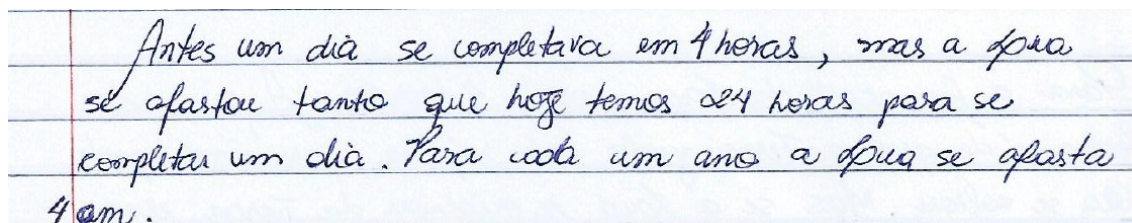 Antes um dia se completava em 4 horas, mas a Lua
se afastou tanto que hoje temos 24 horas para se
completar um dia. Para cada um ano a Lua se afasta
4 cm.